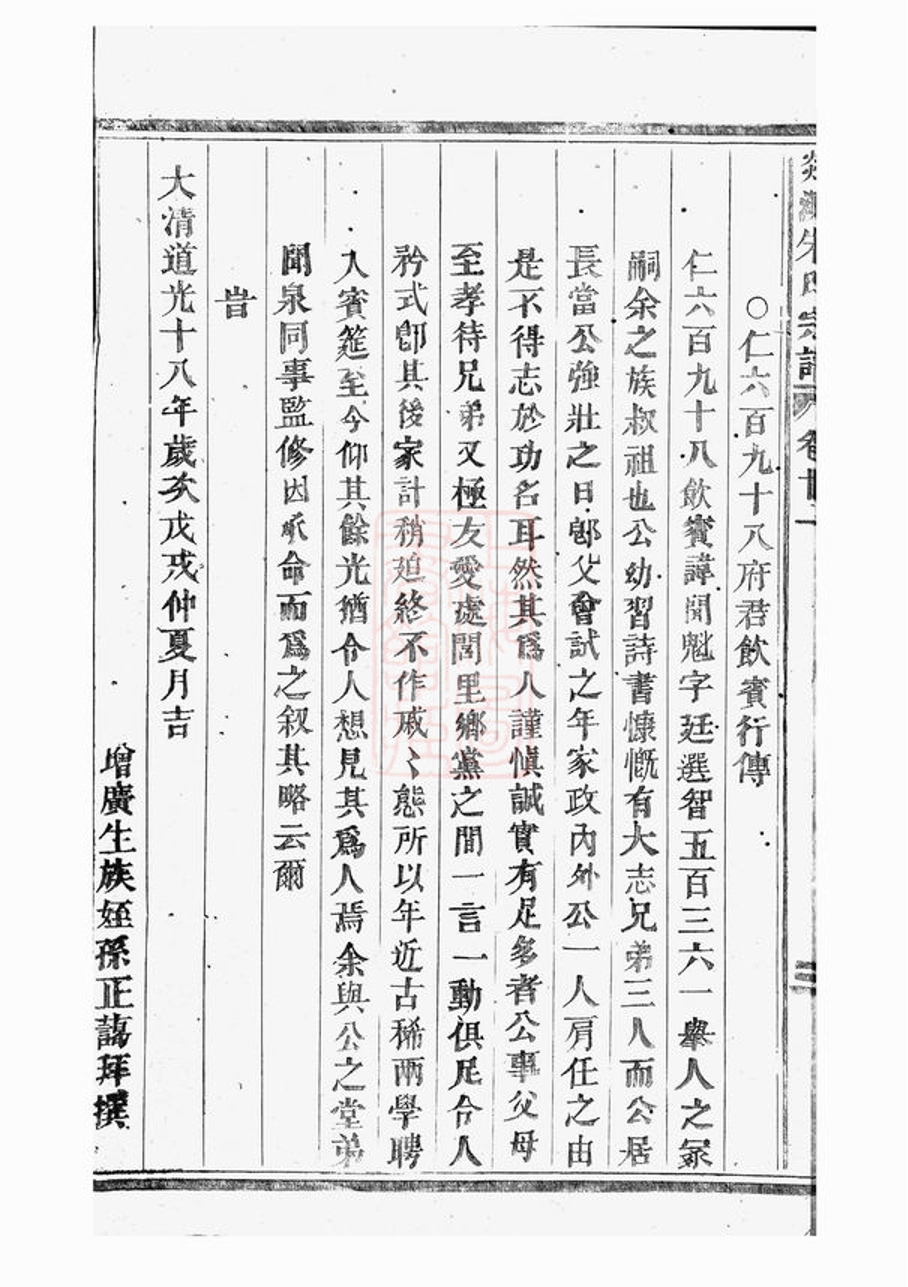 朱氏宗譜 卷廿二
○仁六百九十八府君飲賓行傳
仁六百九十八飲賓諱聞魁字廷選智五百三六一舉人之冢
嗣余之族叔祖也公幼習詩書慷慨有大志兄弟三人而公居
長當公強壯之日郎父會試之年家政內外公一人肩任之由
是不得志於功名耳然其爲人謹愼誠實有足多者公事父母
至孝待兄弟又極友愛處閭里鄉黨之間一言一動俱足令人
矜式卽其後家計稍廹終不作戚〻態所以年近古稀兩學聘
入賓筵至今仰其餘光猶令人想見其爲人焉余與公之堂弟
聞泉同事監修因承命而爲之叙其略云爾
旹
大清道光十八年歲次戊戌仲夏月吉
增廣生族姪孫正藹拜撰